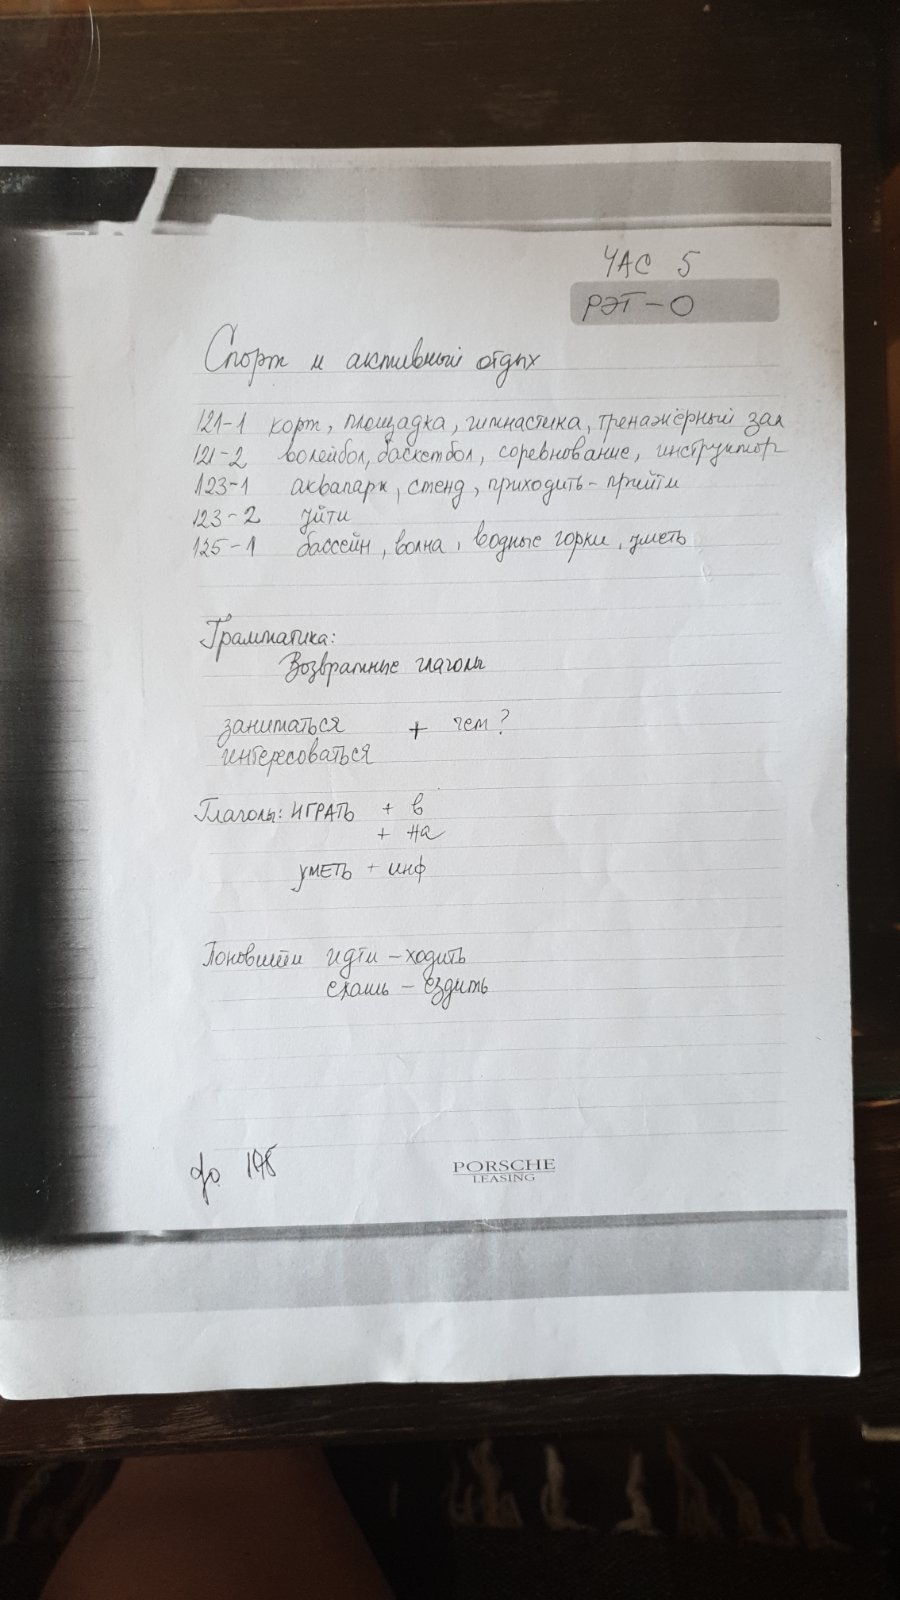 ЧАС 5
РЭТ-0
Спорт и активный отдых
121-1 корт, площадка, гимнастика, тренажёрный зал
121-2 волейбол, баскетбол, соревнование, инструктор
123-1 аквапарк, стенд, приходить - прийти
123-2 уйти
125-1 бассейн, волна, водные горки, уметь
Грамматика:
Возвратные глаголы
заниматься + чем?
интересоваться
Глаголы: ИГРАТЬ + в
+ на
УМЕТЬ + инф
идти - ходить
ехать - ездить
до
PORSCHE
LEASING